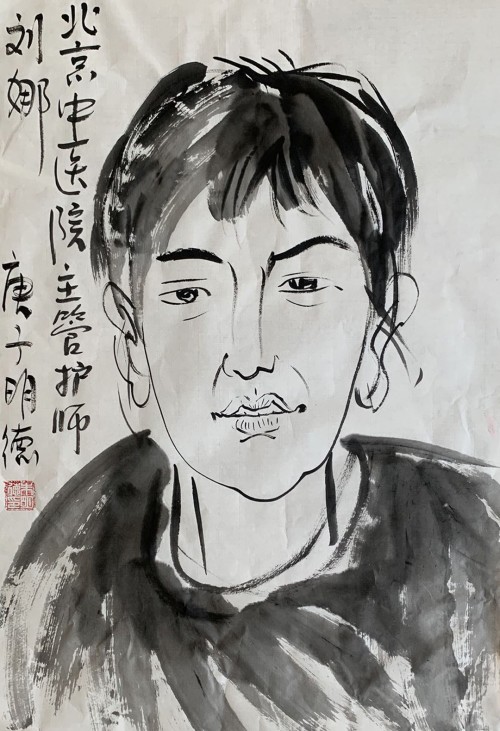 北京中医院主管护师
刘娜
庚子明德